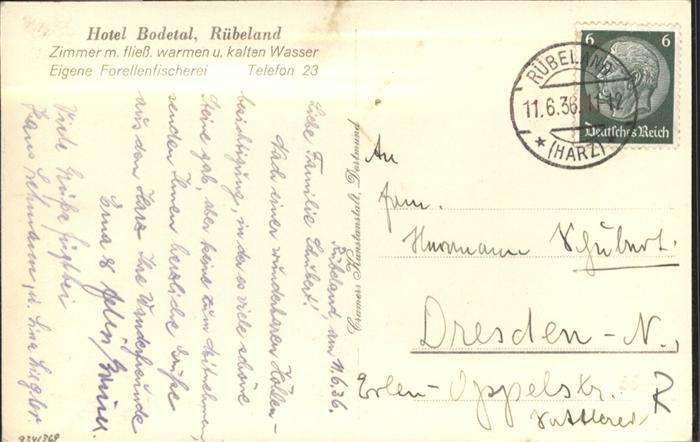 Hotel Bodetal, Rübeland
Zimmer m. fließ. warmen u. kalten Wasser
Eigene Forellenfischerei Telefon 23
6 6
Deutsches Reich
RÜBELAND
11.6.36.11-12
(HARZ)
Rübeland am 11.6.36.
Liebe Familie Schubert!
Nach einer wunderbaren Höhlen-
besichtigung, in der es viele schöne
Steine gab, aber keine zum Mitnehmen,
senden Ihnen herzliche Grüße
aus dem Harz Ihre Wanderfreunde
Erna &
Viele Grüße
Hans Lehmann, u. Lina
An
Fam.
Herrmann Schubert.
Dresden-N.,
Erlen-Oppelstr.
R
9241368